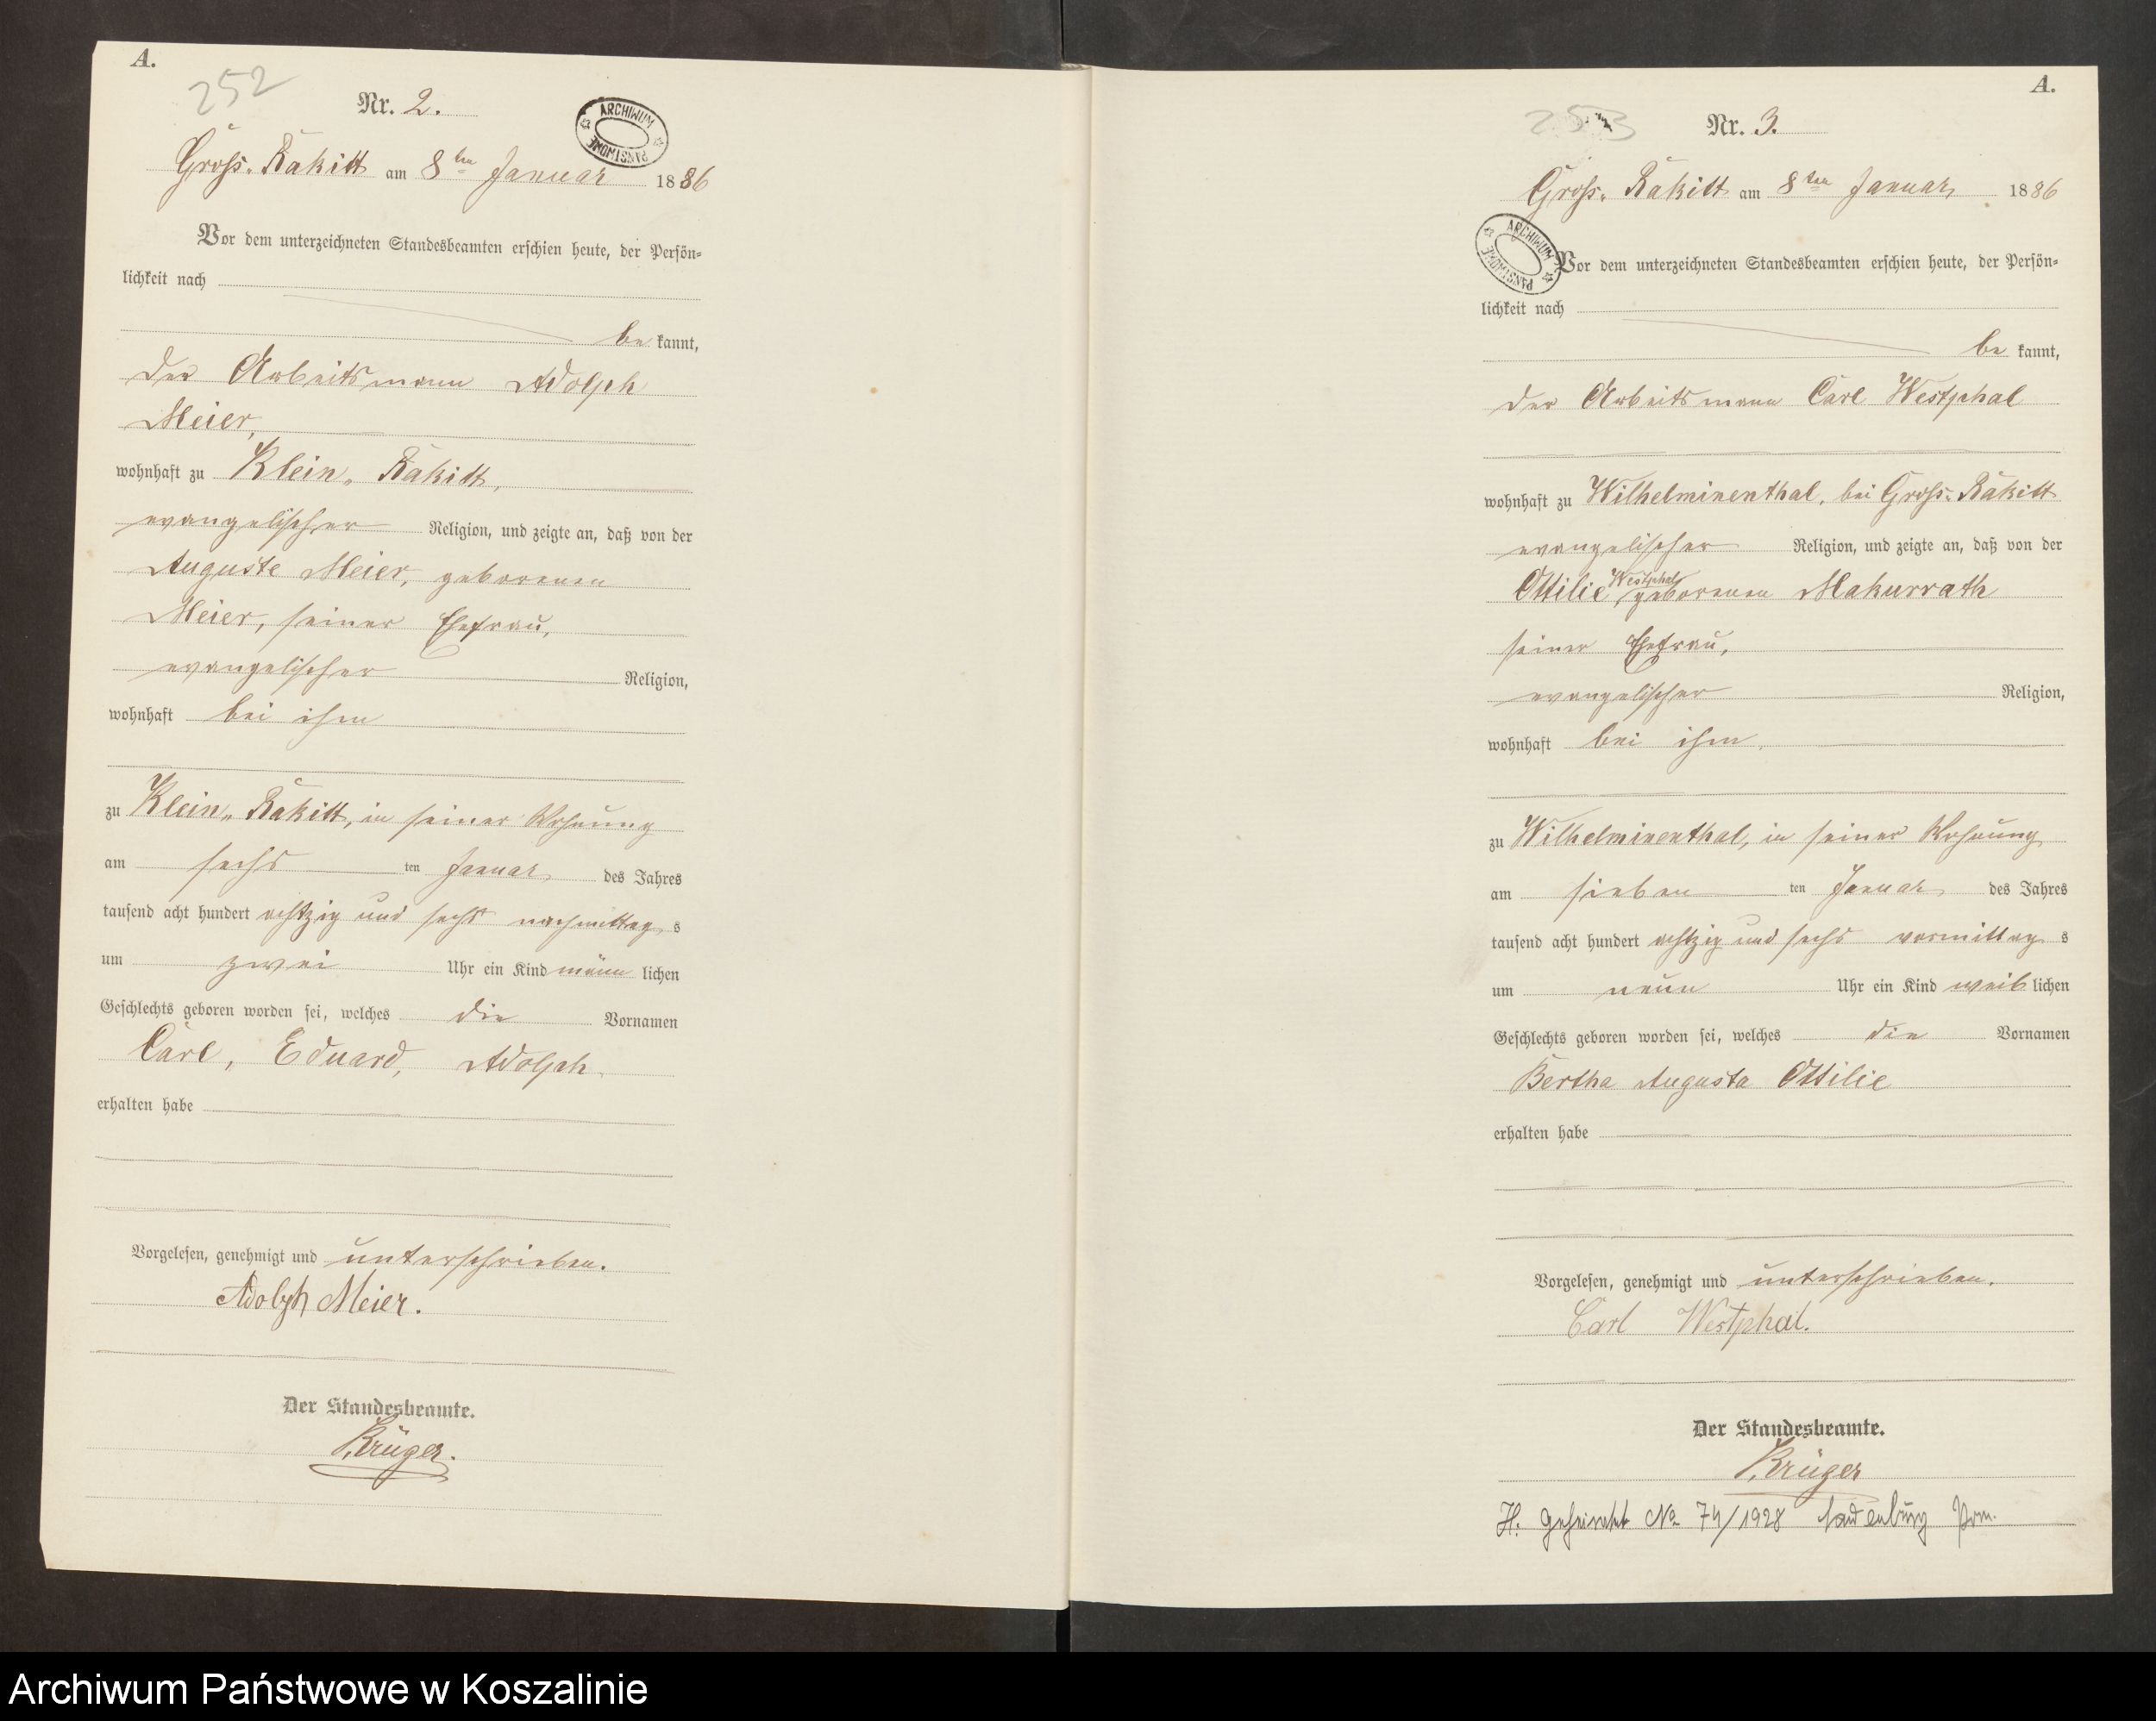 A.
252
Nr. 2.
ARCHIWUM PAŃSTWOWE
Gross-Rakitt am 8ten Januar 1886
Vor dem unterzeichneten Standesbeamten erschien heute, der Persön-
lichkeit nach
be kannt,
der Arbeitsmann Adolph
Meier,
wohnhaft zu Klein-Rakitt,
evangelischer Religion, und zeigte an, daß von der
Auguste Meier, geborenen
Meier, seiner Ehefrau,
evangelischer Religion,
wohnhaft bei ihm
zu Klein-Rakitt, in seiner Wohnung
am sechs ten Januar des Jahres
tausend acht hundert achtzig und sechs nachmittag s
um zwei Uhr ein Kind männ lichen
Geschlechts geboren worden sei, welches die Vornamen
Carl, Eduard, Adolph
erhalten habe
Vorgelesen, genehmigt und unterschrieben.
Adolph Meier.
Der Standesbeamte.
Krüger.
A.
253
Nr. 3.
Gross-Rakitt am 8ten Januar 1886
ARCHIWUM PAŃSTWOWE
Vor dem unterzeichneten Standesbeamten erschien heute, der Persön-
lichkeit nach
be kannt,
der Arbeitsmann Carl Westphal
wohnhaft zu Wilhelminenthal, bei Gross-Rakitt
evangelischer Religion, und zeigte an, daß von der
Ottilie Westphal, geborenen Makurrath
seiner Ehefrau,
evangelischer Religion,
wohnhaft bei ihm,
zu Wilhelminenthal, in seiner Wohnung
am sieben ten Januar des Jahres
tausend acht hundert achtzig und sechs vormittag s
um neun Uhr ein Kind weib lichen
Geschlechts geboren worden sei, welches die Vornamen
Bertha Augusta Ottilie
erhalten habe
Vorgelesen, genehmigt und unterschrieben.
Carl Westphal.
Der Standesbeamte.
Krüger
H. geheiratet No 74/1928 Lauenburg Pom.
Archiwum Państwowe w Koszalinie